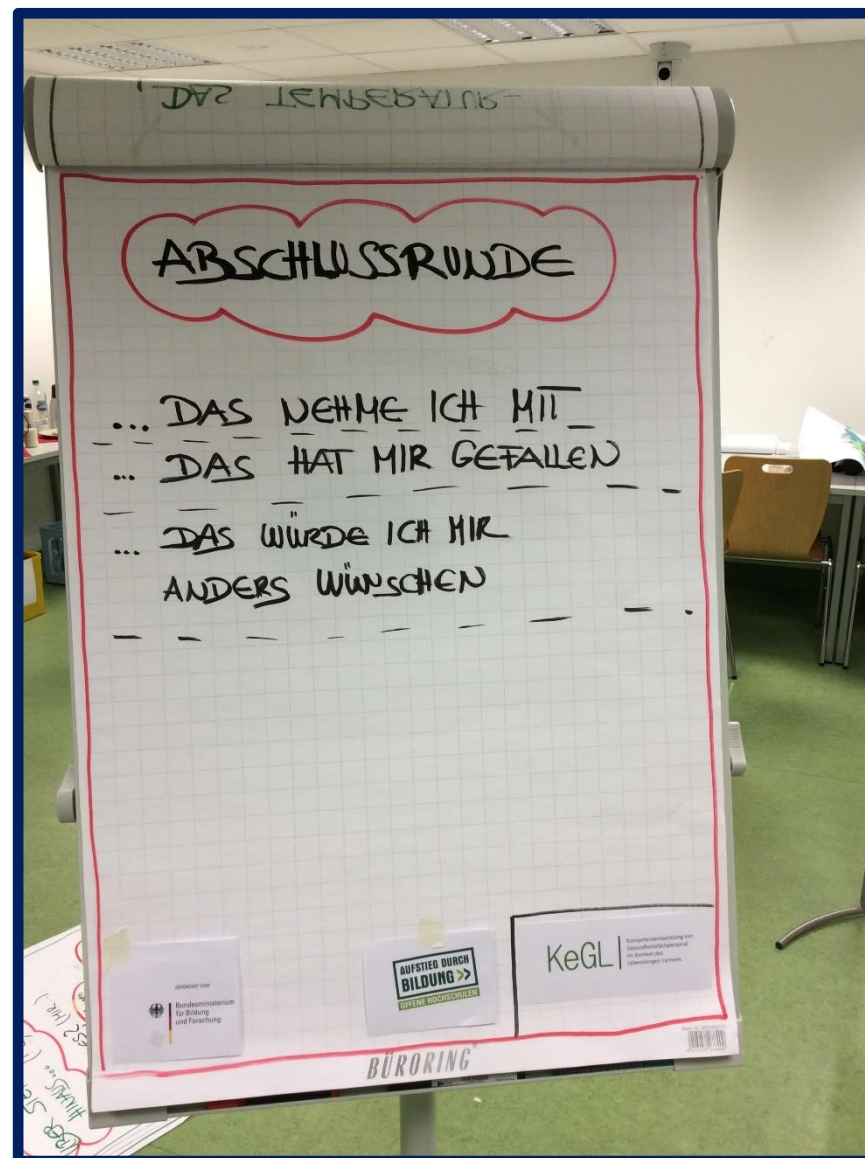 , DAS TEMPERATUR-
ABSCHLUSSRUNDE
... DAS NEHME ICH MIT
... DAS HAT MIR GEFALLEN
... DAS WÜRDE ICH MIR
ANDERS WÜNSCHEN
GEFÖRDERT VOM
Bundesministerium
für Bildung
und Forschung
AUFSTIEG DURCH
BILDUNG >>
OFFENE HOCHSCHULEN
KeGL
Kompetenzentwicklung von
Gesundheitsfachpersonal
im Kontext des
Lebenslangen Lernens
BÜRORING
ÜBER
HINAUS...